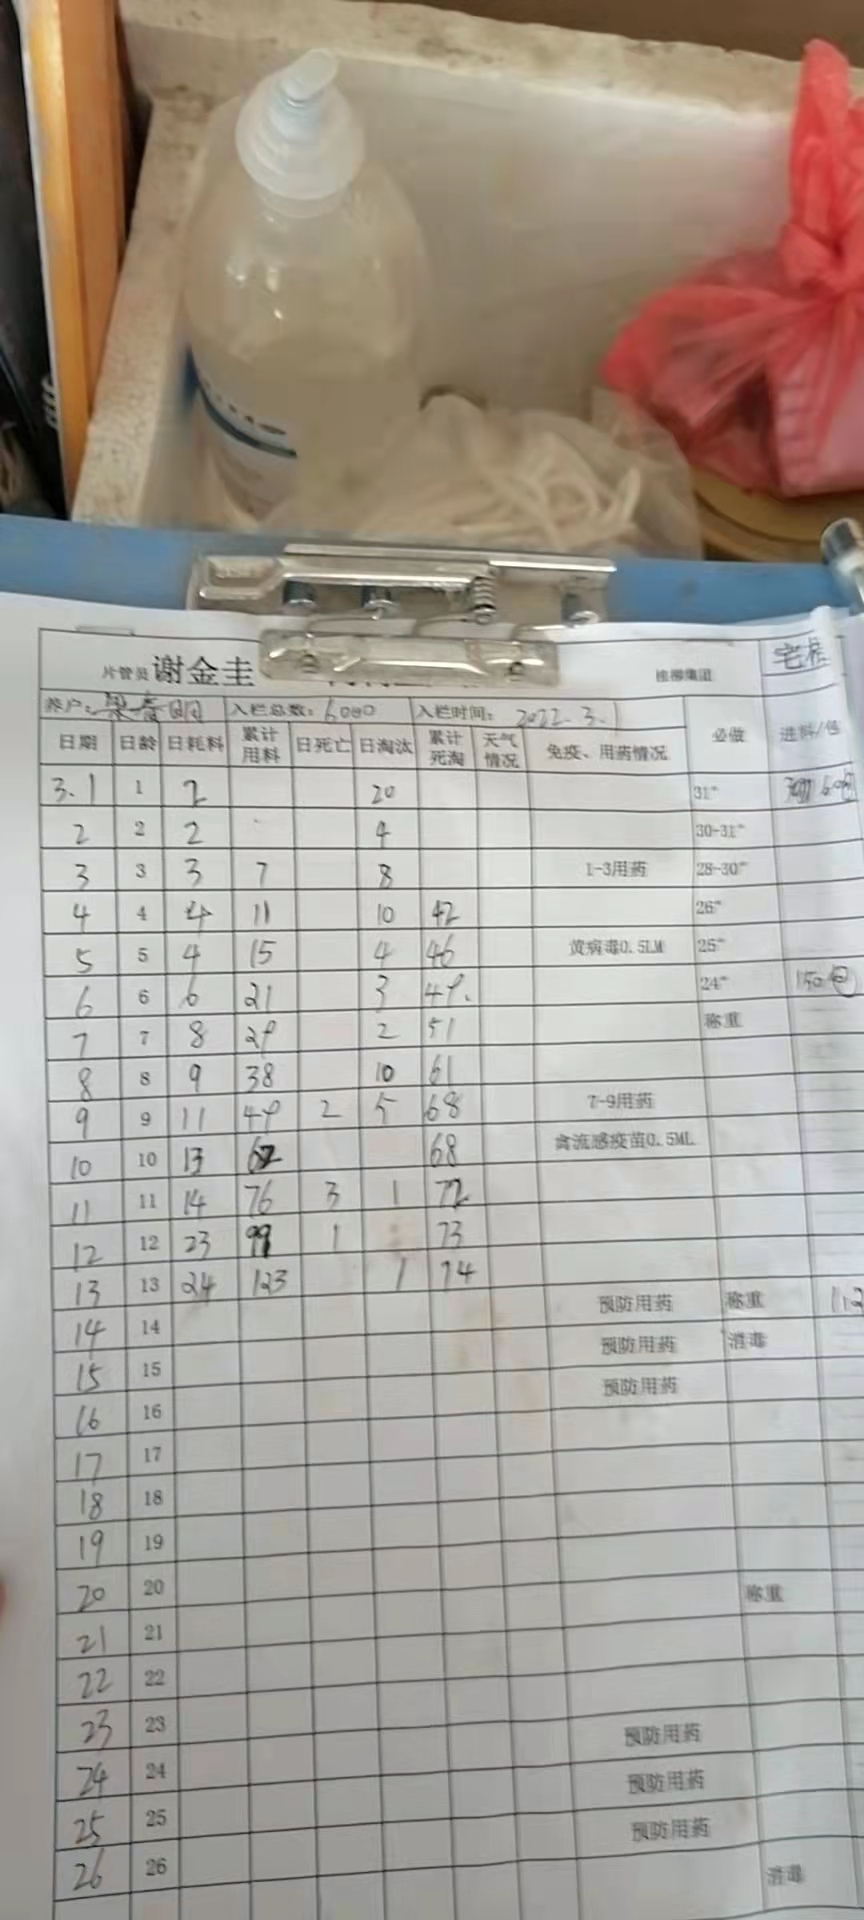 片管员 谢金圭 桂柳集团
养户: 入栏总数: 6000 入栏时间: 2022.3.1
日期 日龄 日耗料 累计用料 日死亡 日淘汰 累计死淘 天气情况 免疫、用药情况 必做 进料/包
3.1 1 2 20 31°
2 2 2 4 30-31°
3 3 3 7 8 1-3用药 28-30°
4 4 4 11 10 42 26°
5 5 4 15 4 46 黄病毒0.5LM 25°
6 6 6 21 3 49. 24° 150包
7 7 8 29 2 51 称重
8 8 9 38 10 61
9 9 11 49 2 5 68 7-9用药
10 10 13 62 68 禽流感疫苗0.5ML
11 11 14 76 3 1 72
12 12 23 99 1 73
13 13 24 123 1 74
14 14 预防用药 称重
15 15 预防用药 消毒
16 16 预防用药
17 17
18 18
19 19
20 20
21 21 称重
22 22
23 23
24 24 预防用药
25 25 预防用药
26 26 预防用药
消毒